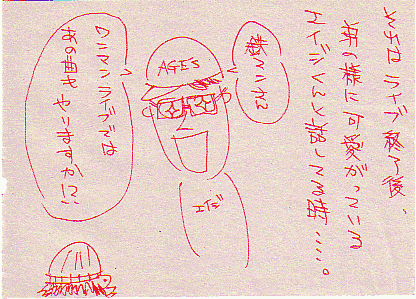 それは ライブ 終了後
弟の様に可愛がっている
エイジくんと話してる時・・・・。
AGE's
エイジ
ワンマンライブでは
あの曲もやりますか!?